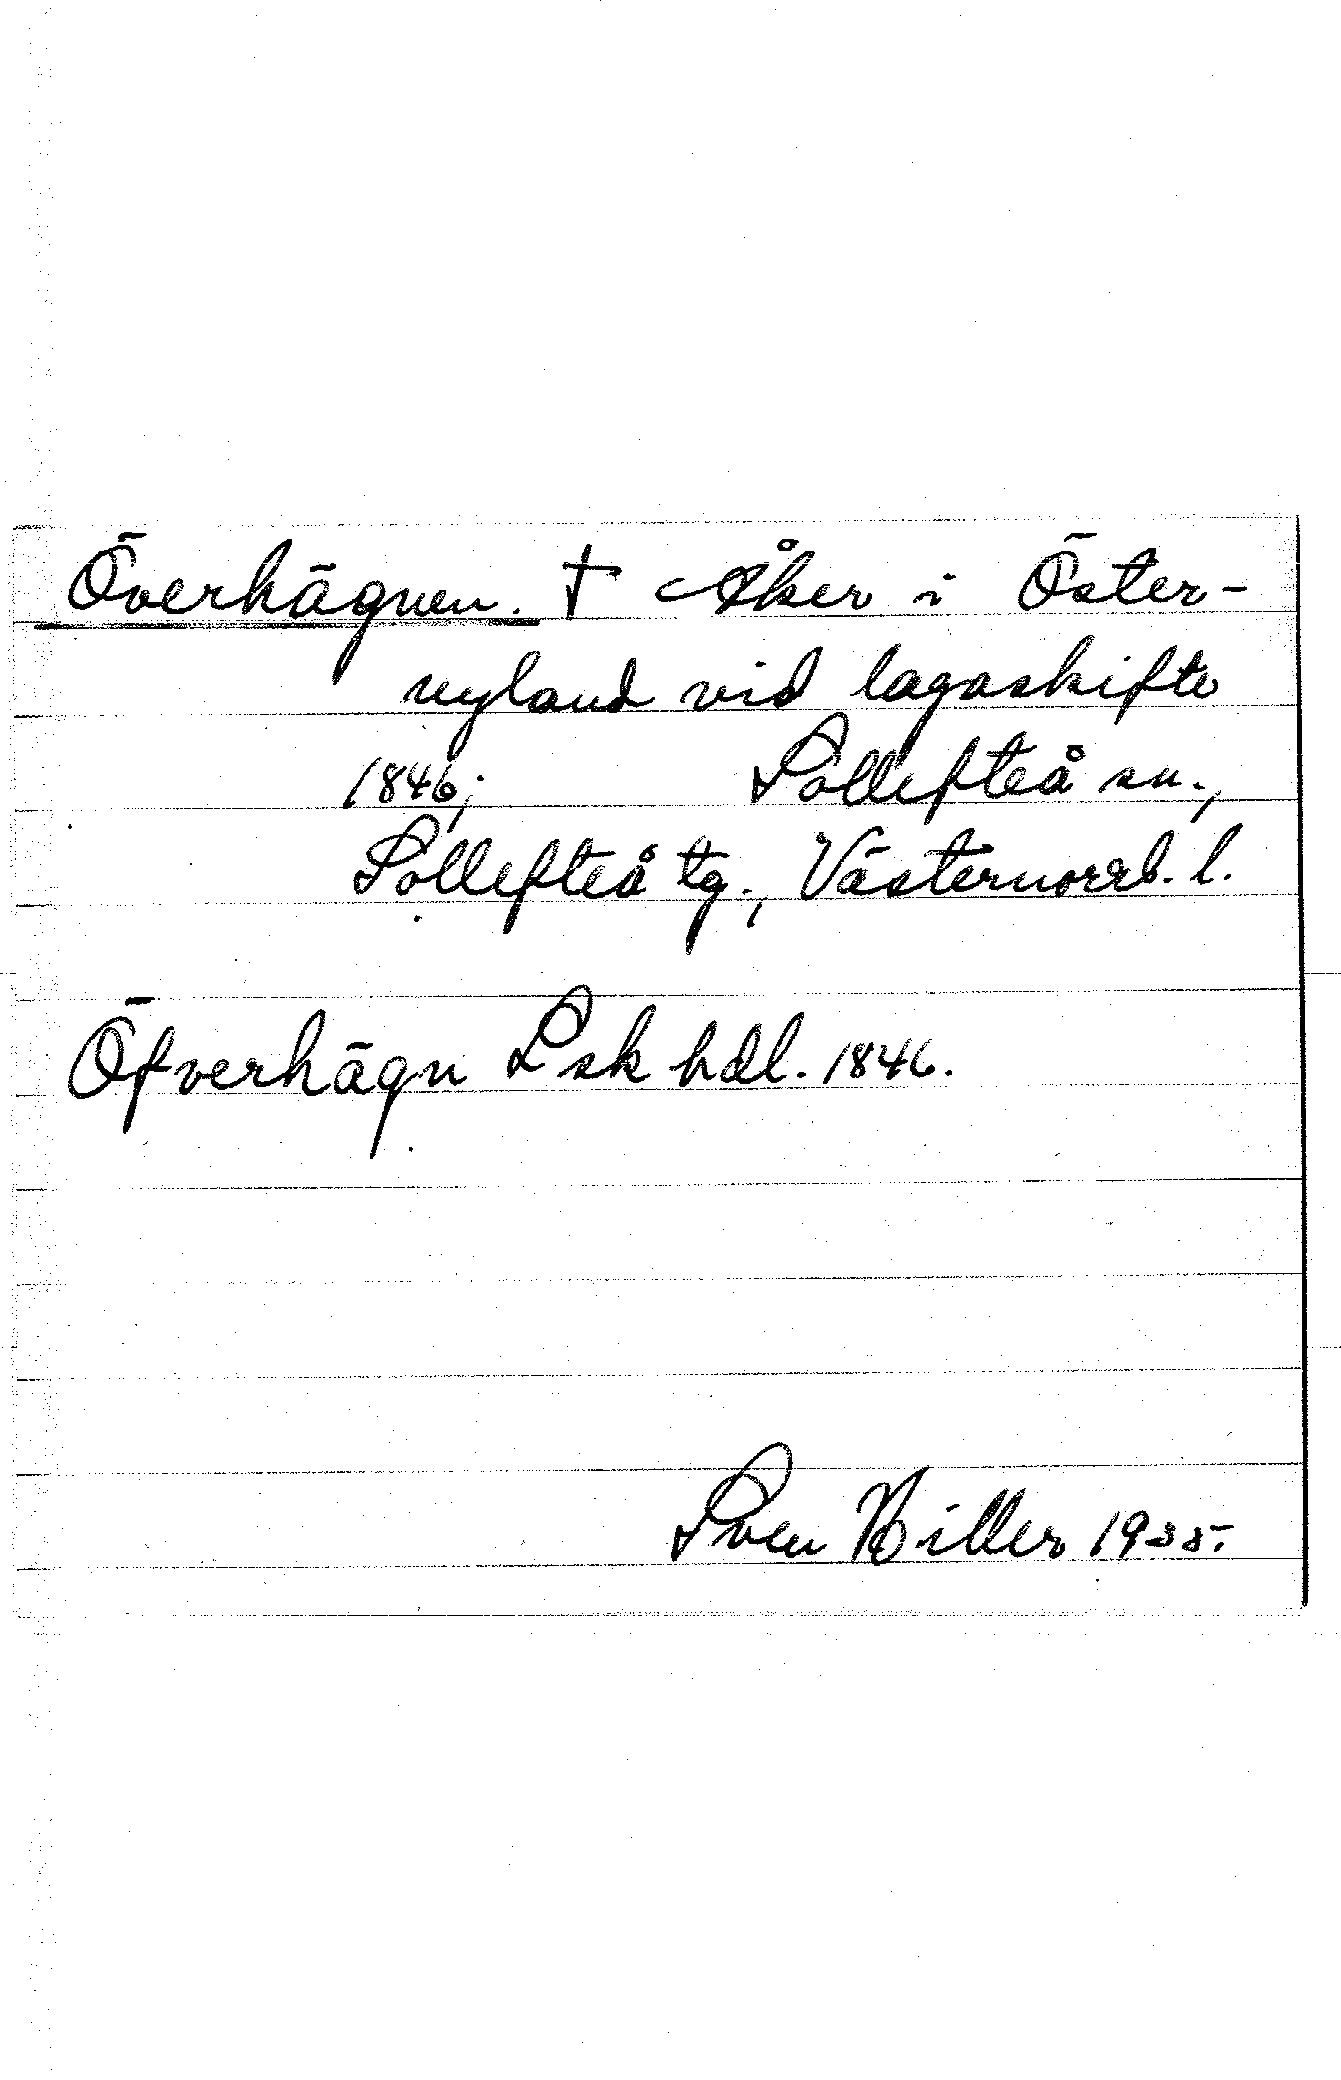 Överhägnen. † Åker i Öster-
nyland vid lagaskifte
1846; Sollefteå sn.,
Sollefteå tg., Västernorrl. l.
Öfverhägn Lsk hdl. 1846.
Sven Hiller 1935.